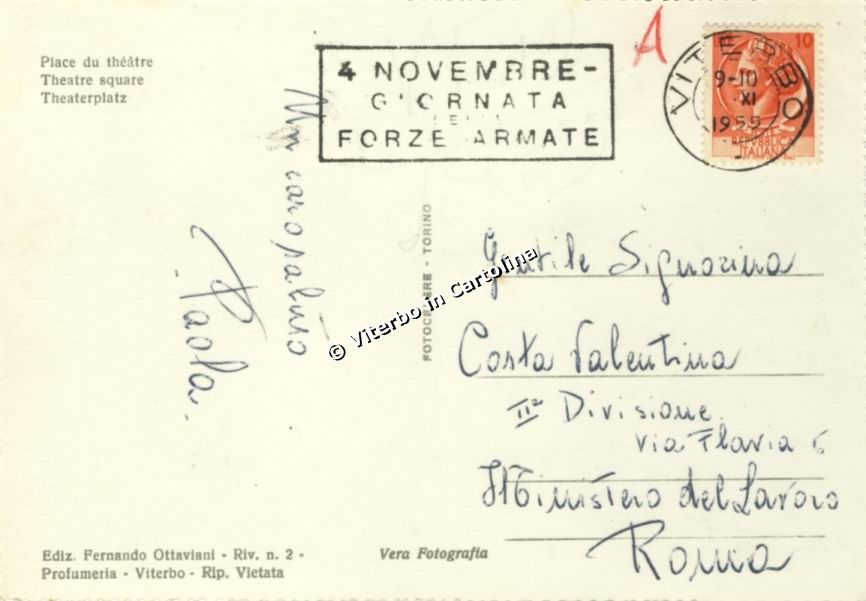 Place du théâtre
Theatre square
Theaterplatz
4 NOVEMBRE -
GIORNATA
DELLE
FORZE ARMATE
A
VITERBO
9-10
XI
1955
10
REPUBBLICA
ITALIANA
Un caro saluto
Paola.
FOTOCELERE - TORINO
© Viterbo in Cartolina
Gentile Signorina
Costa Valentina
IIª Divisione
via Flavia 6
Ministero del Lavoro
Roma
Ediz. Fernando Ottaviani - Riv. n. 2 -
Profumeria - Viterbo - Rip. Vietata
Vera Fotografia